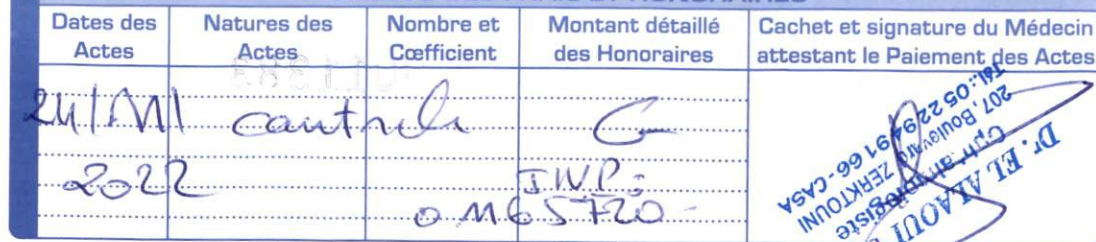 Dates des Actes
Natures des Actes
Nombre et Cœfficient
Montant détaillé des Honoraires
Cachet et signature du Médecin attestant le Paiement des Actes
24/11/ controle G
2022
INP:
011165720
Dr. EL ALAOUI
207, Boulevard ZERKTOUNI
Tél.: 05 22 94 91 66 - CASA